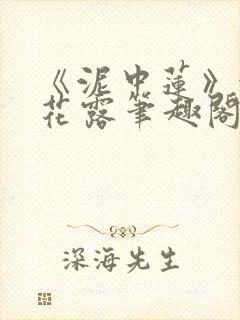 《泥中莲》
花露笔趣阁
深海先生